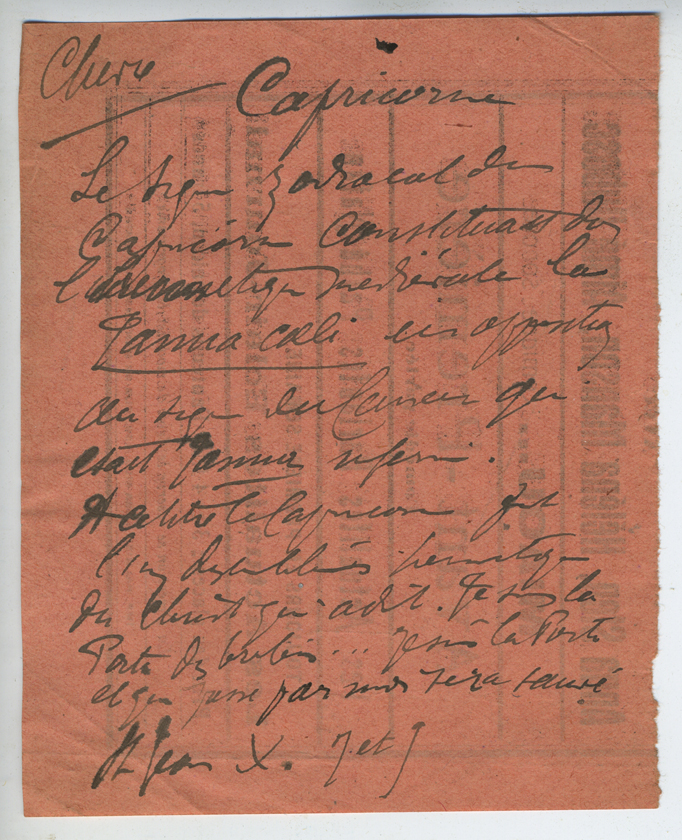 Chèvre
Capricorne
Le signe zodiacal du
Capricorne constituait dans
l'hermétique médiévale la
Janua cœli en opposition
au signe du Cancer qui
était Janua inferni.
A ce titre le Capricorne fut
l'un des emblèmes hermétiques
du Christ qui a dit. Je suis la
Porte des brebis... Je suis la Porte
et qui passe par moi sera sauvé
St Jean X. 7 et 9